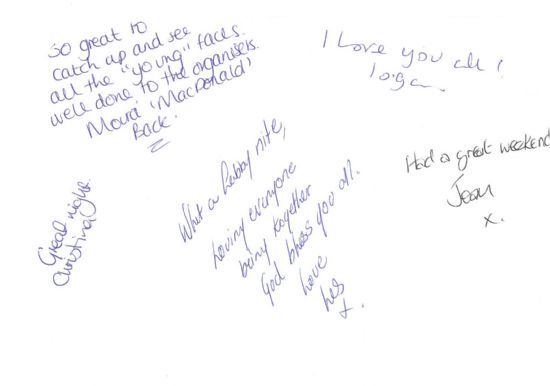 So great to
catch up and see
all the "young" faces.
well done to the organisers.
Moira 'MacDonald'
Back.
I Love you all!
Had a great weekend
Jean
x.
Great night
Christina
What a fabby nite,
having everyone
being together
God bless you all.
Love
x.